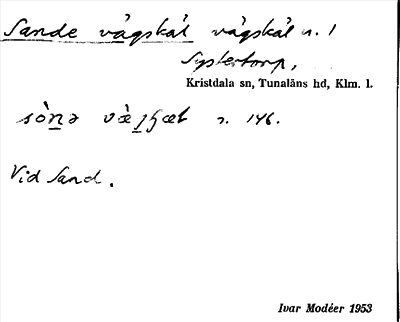 Sande vågskål vågskäl n. 1
Systertorp,
Kristdala sn, Tunaläns hd, Klm. l.
sò̱nə 146.
Vid Sand.
Ivar Modéer 1953